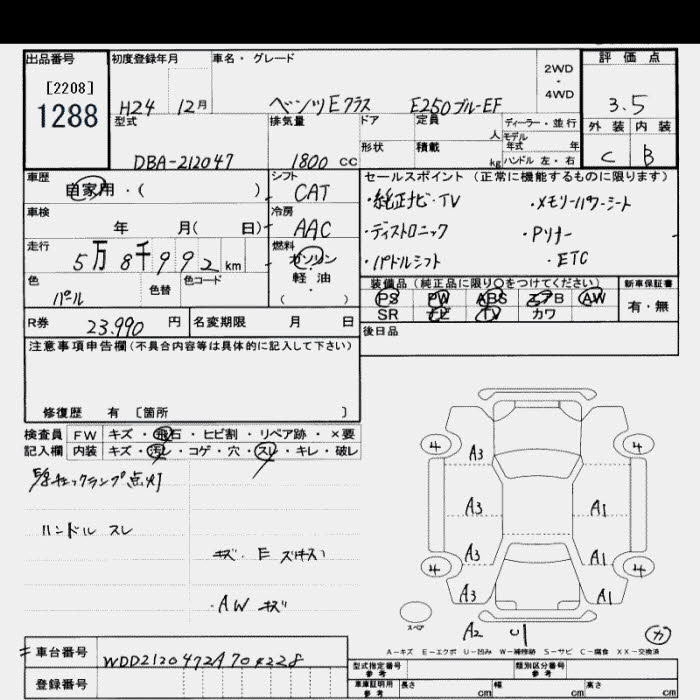 出品番号 初度登録年月 車名・グレード 2WD・4WD 評価点
[2208]
1288
H24 12月 ベンツEクラス E250ブルーEF 3.5
型式 排気量 ドア 定員 人 ディーラー・並行 外装 内装
モデル年式 年
DBA-212047 1800 CC 形状 積載 kg ハンドル 左・右 C B
車歴 自家用・( ) シフト CAT セールスポイント (正常に機能するものに限ります)
・純正ナビ・TV ・メモリーパワーシート
車検 年 月( 日) 冷房 AAC ・ディストロニック ・Pリナー
走行 5万8千992km 燃料 ガソリン・軽油・( ) ・パドルシフト ・ETC
色 パール 色替 色コード
装備品 (純正品に限り○をつけてください) 新車保証書
PS PW ABS エアB AW 有・無
SR ナビ TV カワ
R券 23.990 円 名変期限 月 日 後日品
注意事項申告欄 (不具合内容等は具体的に記入して下さい)
修復歴 有 [箇所 ]
検査員 FW キズ・飛石・ヒビ割・リペア跡・×要
記入欄 内装 キズ・汚レ・コゲ・穴・スレ・キレ・破レ
チェックランプ点灯
ハンドル スレ
キズ・E
・AW キズ
4 A3 4
A3 A1
A3 A1
4 A3 A1 4
スペア A2 U1 カ
A-キズ E-エクボ U-凹み W-補修跡 S-サビ C-腐食 XX-交換済
車台番号 WDD2120472A704228
登録番号
型式指定番号 参考 類別区分番号 参考
車庫証明用 参考 長さ cm 幅 cm 高さ cm